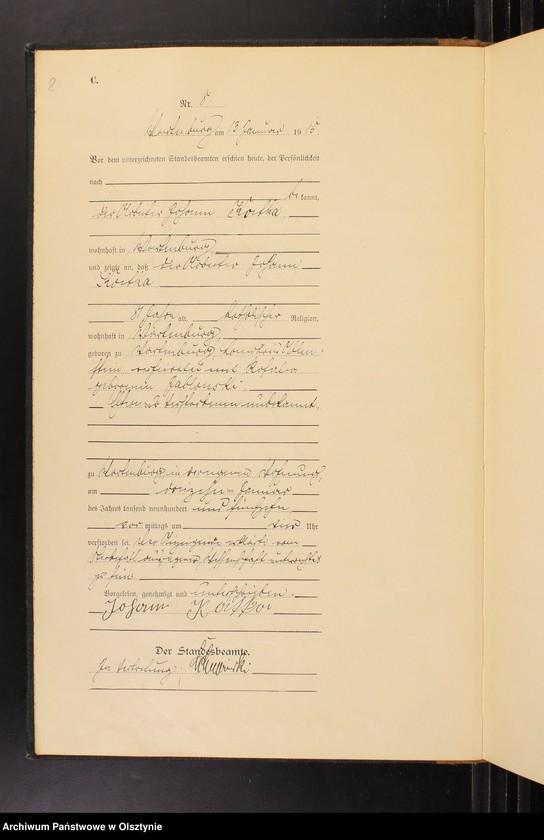 8
C.
Nr. 8.
Wartenburg am 13 Januar 1915.
Vor dem unterzeichneten Standesbeamten erschien heute, der Persönlichkeit
nach
be kannt,
der Arbeiter Johann Koitka
wohnhaft in Wartenburg
und zeigte an, daß der Arbeiter Johann
Koitka
81 Jahre alt, katholischer Religion,
wohnhaft in Wartenburg,
geboren zu Wartenburg, Landkreis Allen-
stein, verheiratet mit Rosalia
geborenen Jablonski.
Eltern verstorbenen unbekannt,
zu Wartenburg in Wohnung,
am dreizehn ten Januar
des Jahres tausend neunhundert und fünfzehn
vor mittags um Uhr
verstorben sei. Der Anzeigende erklärt vom
Sterbefall aus eigener Wissenschaft unterrichtet
zu sein
Vorgelesen, genehmigt und unterschrieben.
Johann
Der Standesbeamte.
In Vertretung:
Archiwum Państwowe w Olsztynie